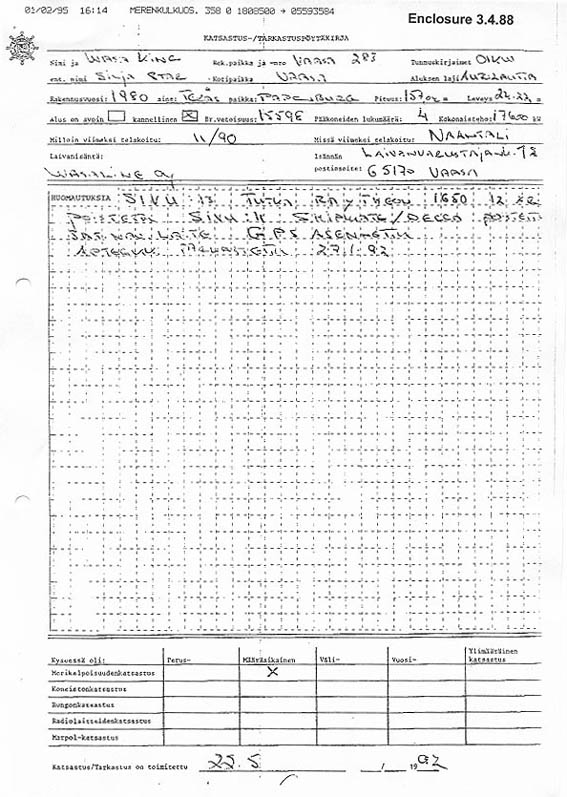 01/02/95 16:14 MERENKULKUOS. 358 0 1808500 → 05593584
Enclosure 3.4.88
KATSASTUS-/TARKASTUSPÖYTÄKIRJA
Nimi ja WASA KING Rek.paikka ja -nro VAASA 283 Tunnuskirjaimet OIKW
ent. nimi Kotipaikka VAASA Aluksen laji
Rakennusvuosi: 1980 aine: TERÄS paikka: PAPENBURG Pituus: 157,02 m Leveys 24.22 m
Alus on avoin kannellinen X Br.vetoisuus: 15598 Pääkoneiden lukumäärä: 4 Kokonaisteho: 17600 kW
Milloin viimeksi telakoitu: 11/90 Missä viimeksi telakoitu: NAANTALI
Laivanisäntä: Isännän
WASALINE Oy postiosoite: 65170 VAASA
HUOMAUTUKSIA SIVU 13 TUTKA RAYTHEON 1650 12
POISTETTU SIVU 11 DECCA
GPS ASENNETTU
27.1.92
Kyseessä oli: Perus- Määräaikainen Väli- Vuosi- Ylimääräinen katsastus
Merikelpoisuudenkatsastus X
Koneistonkatsastus
Rungonkatsastus
Radiolaitteidenkatsastus
Marpol-katsastus
Katsastus/Tarkastus on toimitettu 25.5 __/__ 1992